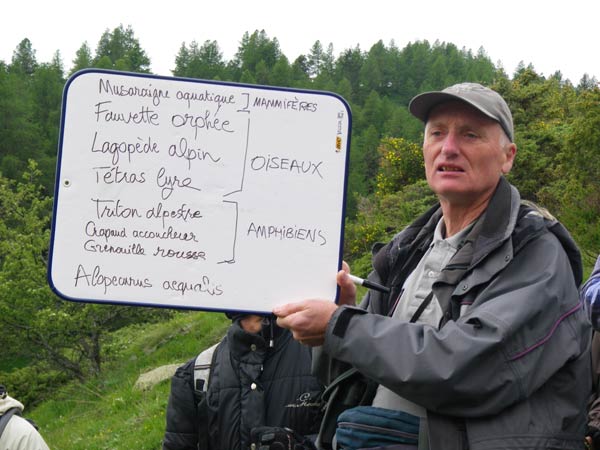 Musaraigne aquatique ] MAMMIFÈRES
Fauvette orphée
Lagopède alpin
OISEAUX
Tétras lyre
Triton alpestre
Crapaud accoucheur
AMPHIBIENS
Grenouille rousse
Alopecurus acqualis